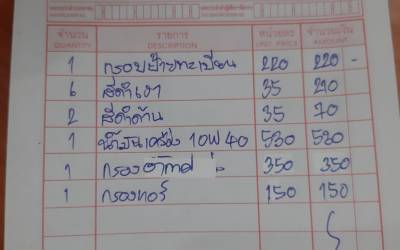 จำนวน รายการ หน่วยละ จำนวนเงิน
QUANTITY DESCRIPTION UNIT PRICE AMOUNT
1 กรอบป้ายทะเบียน 220 220 -
6 สีดำเงา 35 290
2 สีดำด้าน 35 70
1 น้ำมันเครื่อง 10W40 530 530
1 กรองอากาศ 350 350
1 กรองทอร์ 150 150